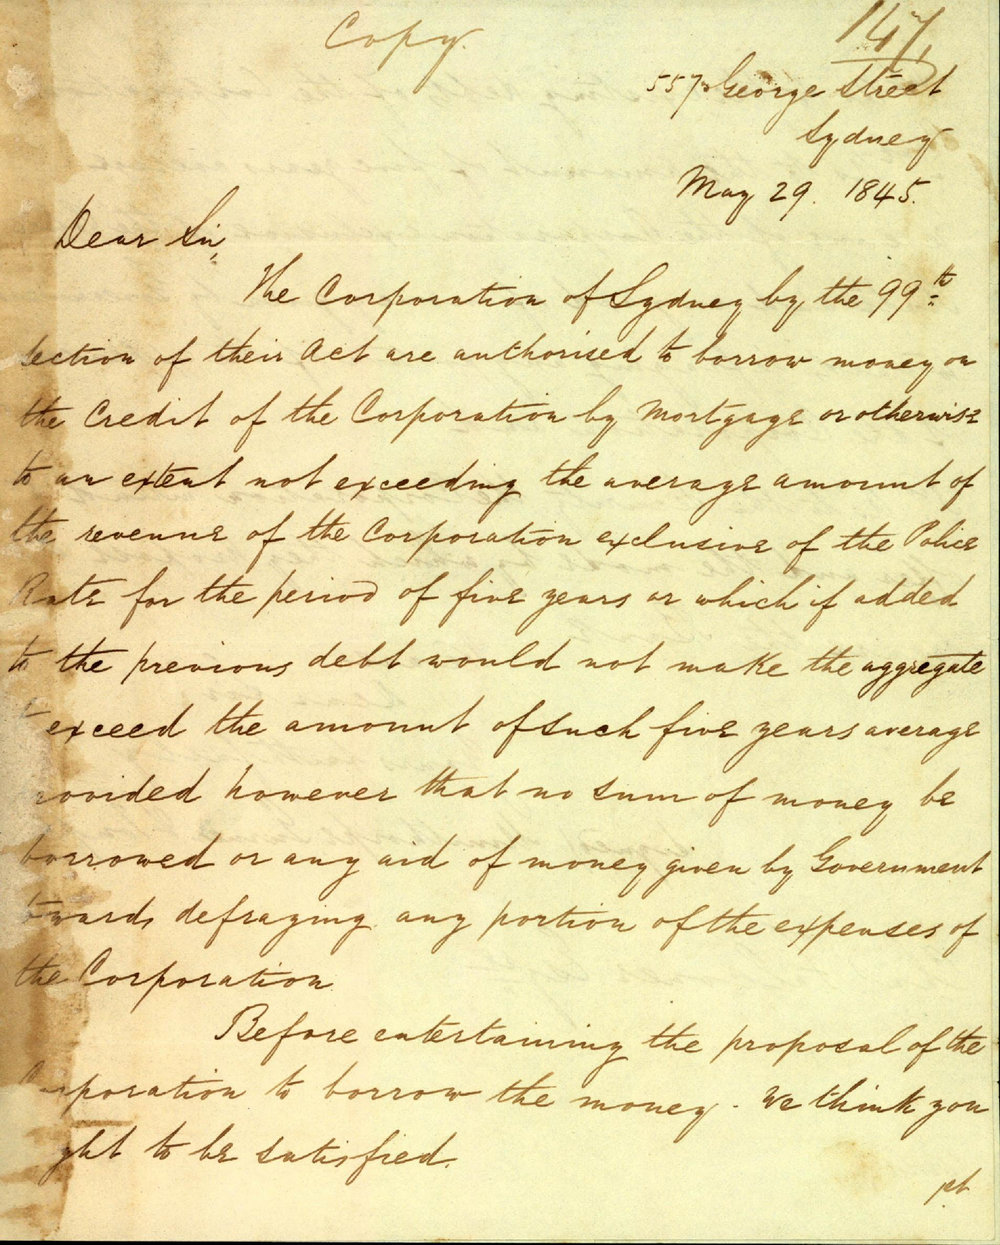 Copy.
147,
557 George Street
Sydney
May 29. 1845.
Dear Sir,
The Corporation of Sydney by the 99th
section of their Act are authorised to borrow money on
the Credit of the Corporation by Mortgage or otherwise
to an extent not exceeding the average amount of
the revenue of the Corporation exclusive of the Police
Rate for the period of five years or which if added
to the previous debt would not make the aggregate
exceed the amount of such five years average
rovided however that no sum of money be
borrowed or any aid of money given by Government
towards defraying any portion of the expenses of
the Corporation
Before entertaining the proposal of the
Corporation to borrow the money. We think you
ght to be satisfied.